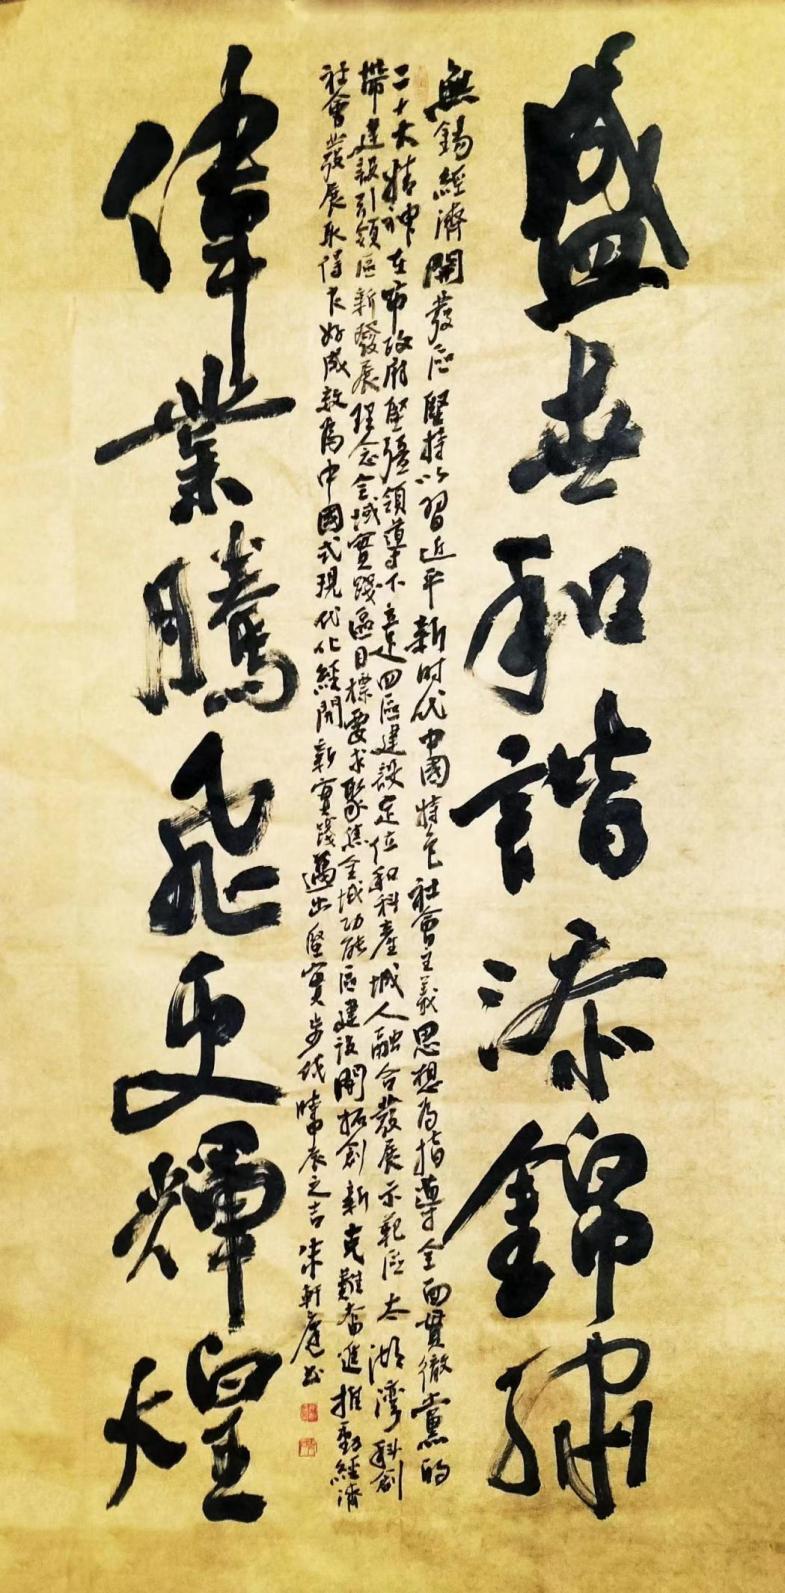 盛世和諧添錦繡
無錫經濟開發區堅持以習近平新时代中國特色社會主義思想为指導全面貫徹黨的
二十大精神在市政府堅強領導下立足四區建設定位和科產城人融合發展示範區太湖灣科創
帶建設引領區新發展理念全域實踐區目標要求聚焦全域功能區建设開拓創新克難奮進推動經濟
社會發展取得良好成效為中國式現代化經開新實踐邁出堅實步伐時甲辰之吉朱軒廷书
偉業騰飛更輝煌